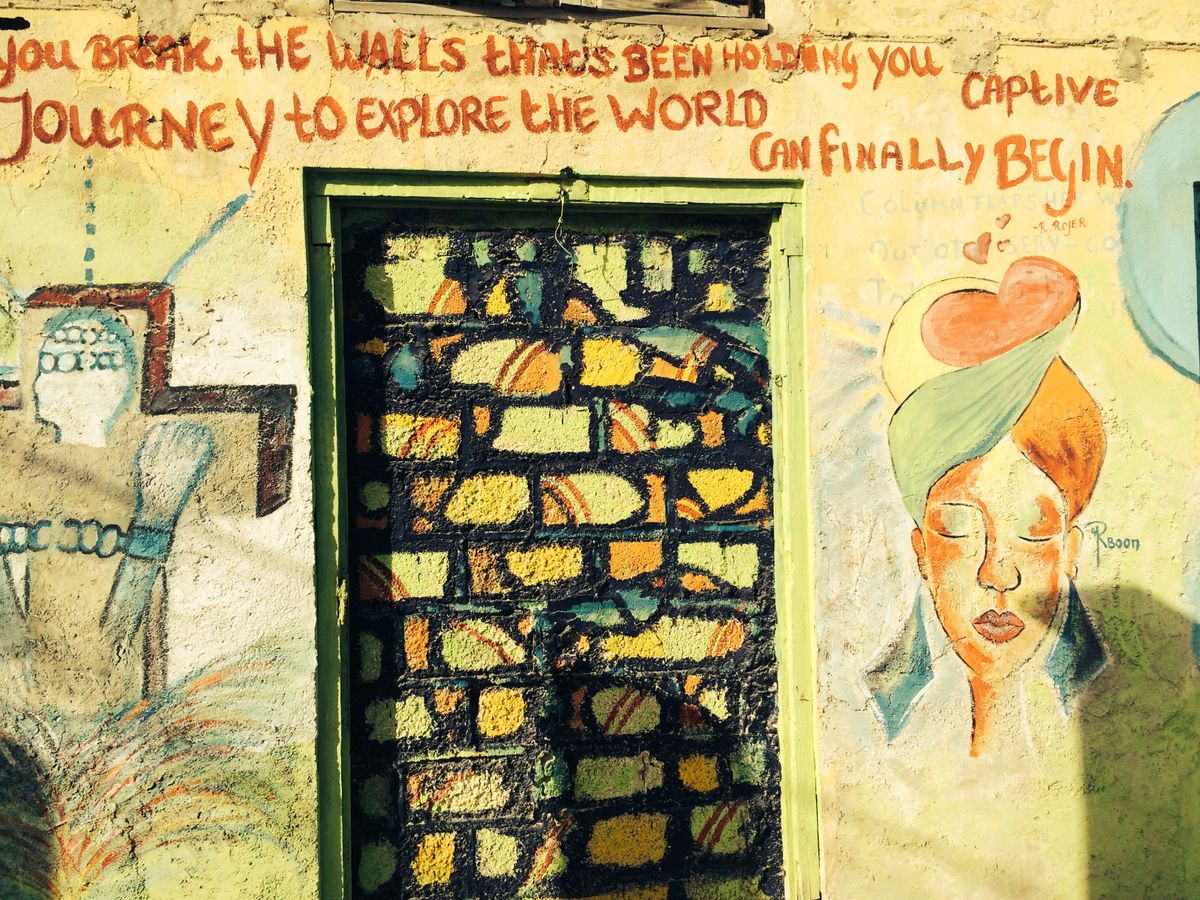 you BREAK tHE WALLS tHAt'S BEEN HOLDiNg you
CAptiVE
JOURNEy to EXPLORE tHE WORLD
CAN FiNALLy BEgIN.
-R. ROJER
COLUMN FLAPS HER W
OUT OF SERY-CO
RBOON